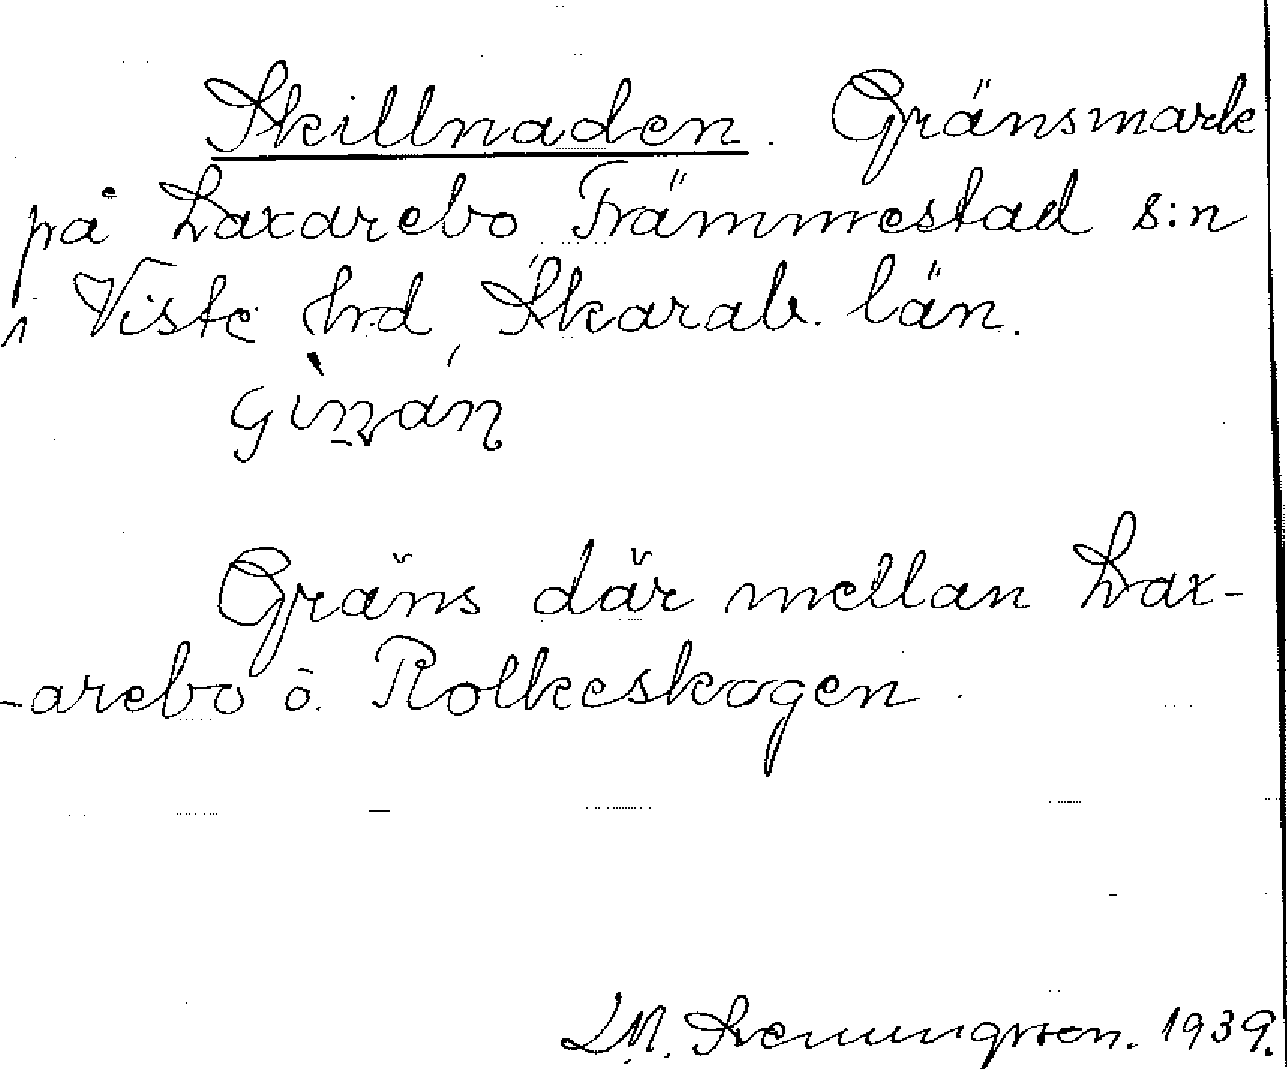 Skillnaden. Gränsmark
på Laxarebo Främmestad s:n
i Viste hrd Skarab. län.
Gräns där mellan Lax-
-arebo o. Rolkeskogen.
1939.